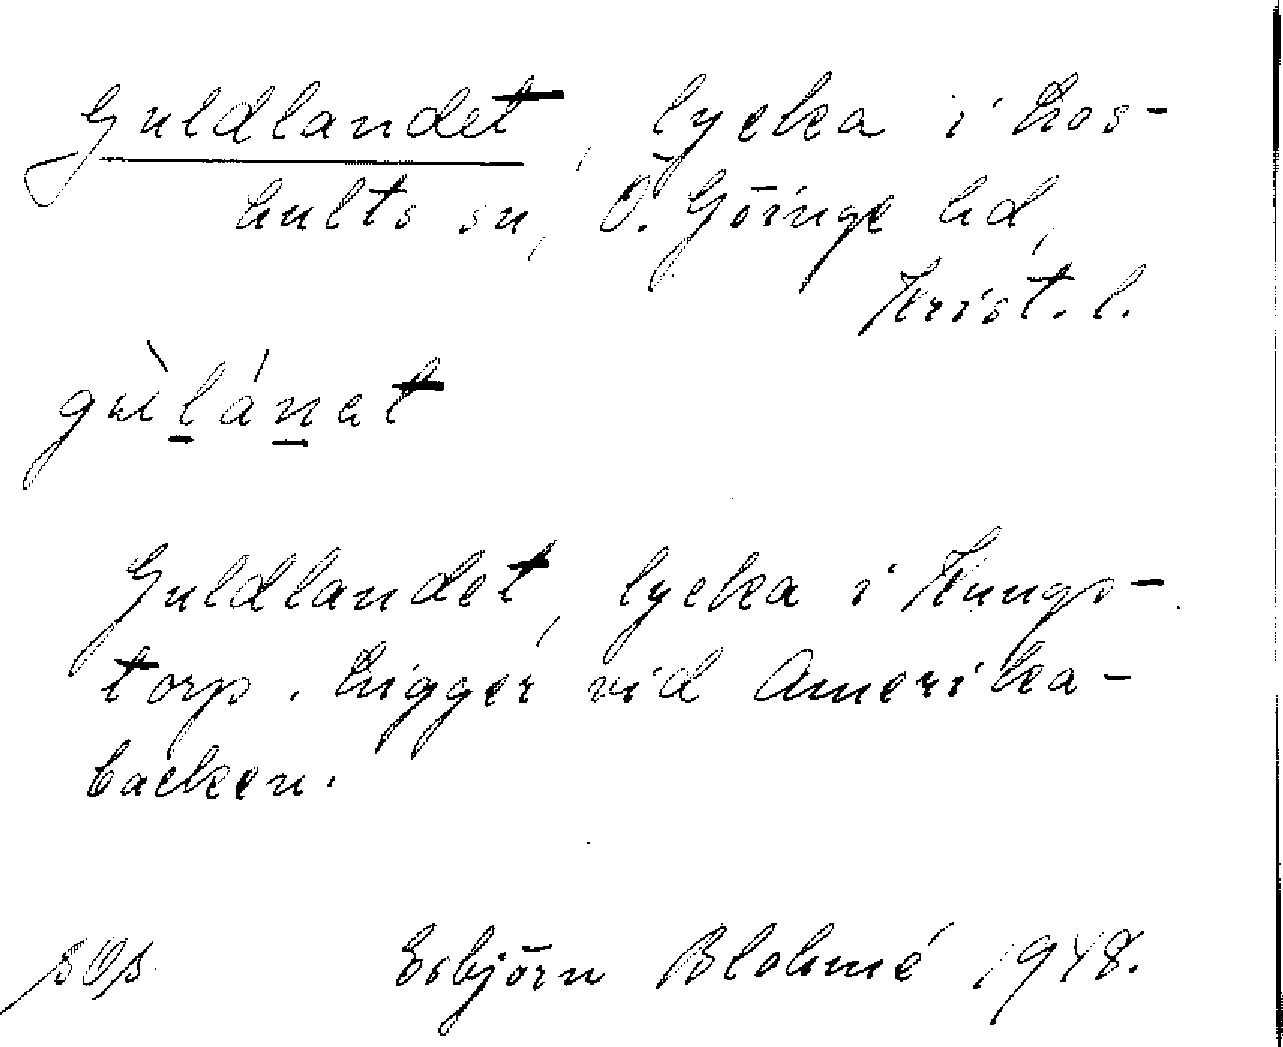 Guldlandet, lycka i Los-
hults sn, Ö. Göinge hd,
Krist. l.
gùlánat
Guldlandet, lycka i Kungs-
torp. Ligger vid Amerika-
backen.
Esbjörn Blohmé 1948.